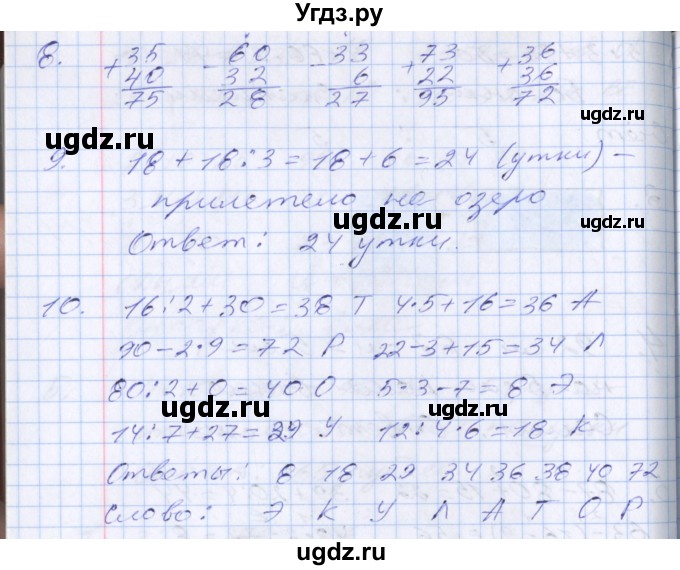 Угдз.ру
8. +35 -60 -33 +73 +36
40 32 6 22 36
75 28 27 95 72
9. 18 + 18 : 3 = 18 + 6 = 24 (утки) –
прилетело на озеро
Ответ: 24 утки.
10. 16 : 2 + 30 = 38 Т 4 · 5 + 16 = 36 А
90 – 2 · 9 = 72 Р 22 – 3 + 15 = 34 Л
80 : 2 + 0 = 40 О 5 · 3 – 7 = 8 Э
14 : 7 + 27 = 29 У 12 : 4 · 6 = 18 К
Ответы: 8 18 29 34 36 38 40 72
Слово: Э К У Л А Т О Р
ugdz.ru
ugdz.ru
ugdz.ru
ugdz.ru
ugdz.ru
ugdz.ru
ugdz.ru
ugdz.ru
ugdz.ru
ugdz.ru